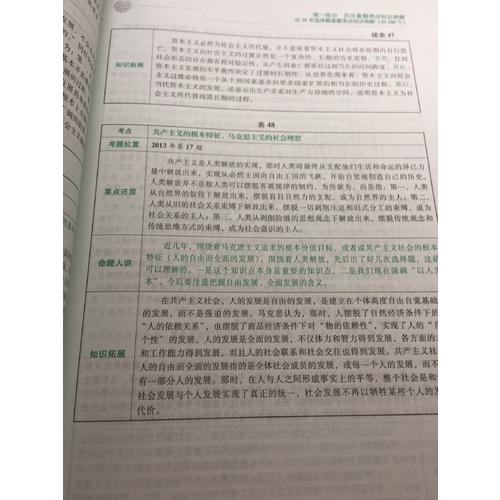 第一部分 历年真题考点知识图解
近19年选择题真题考点知识图解(共188个)
续表 47
知识拓展
资本主义必然为社会主义所代替,并不意味着资本主义社会将在短期内自行消
亡。资本主义向社会主义的过渡必然是一个复杂的、长期的历史进程。首先,任何
社会形态的存在都有相对稳定性,从产生到衰亡都要经过相当长的时间跨度。其次,
资本主义发展的不平衡性决定了过渡的长期性。从世界范围来看,资本主义向社会
主义过渡必将是一个从个别国家逐步向更多国家扩展的相当长的历史过程。最后,
当代资本主义的发展,还显示出生产关系对生产力容纳的空间,说明资本主义为社
会主义所代替尚需长期的过程。
表 48
考点
共产主义的根本特征,马克思主义的社会理想
考题位置
2013 年第 17 题
要点还原
共产主义是人类解放的实现,那时人类将最终从支配他们生活和命运的异己力
量中解放出来,实现从必然王国向自由王国的飞跃,开始自觉地创造自己的历史。
人类解放并不是指人类可以摆脱客观规律的制约,为所欲为,而是指:第一,人类
从自然界的奴役下解放出来,摆脱盲目自然力的支配,成为自然界的主人;第二,
人类从旧的社会关系束缚下解放出来,摆脱一切剥削压迫和旧式分工的束缚,成为
社会关系的主人;第三,人类从剥削阶级的思想观念下解放出来,摆脱传统观念和
传统思维方式的束缚,成为社会意识的主人。
命题人说
近几年,围绕着马克思主义追求的根本价值目标,或者说共产主义社会的根本
特征(人的自由而全面的发展),围绕着人类解放,先后出了好几次选择题,这是
可以理解的。一是这个知识点本身是重要的知识点,二是我们现在强调“以人为
本”。今后要注意把握自由发展、全面发展的含义。
知识拓展
在共产主义社会,人的发展是自由的发展,是建立在个体高度自由自觉基础
的发展,而不是强迫的发展。马克思认为,那时,人摆脱了自然经济条件下的
“人的依赖关系”,也摆脱了商品经济条件下对“物的依赖性”,实现了人的“自
个性”的发展。人的发展是全面的发展,不仅体力和智力得到发展,各方面的
和工作能力得到发展,而且人的社会联系和社会交往也得到发展。共产主义社
人的自由而全面的发展指的是全体社会成员的发展,或每一个人的发展,而不
有一部分人的发展。那时,在人与人之间形成事实上的平等,整个社会是和
社会发展与个人发展实现了真正的统一,社会发展不再以牺牲某些个人的发
代价。